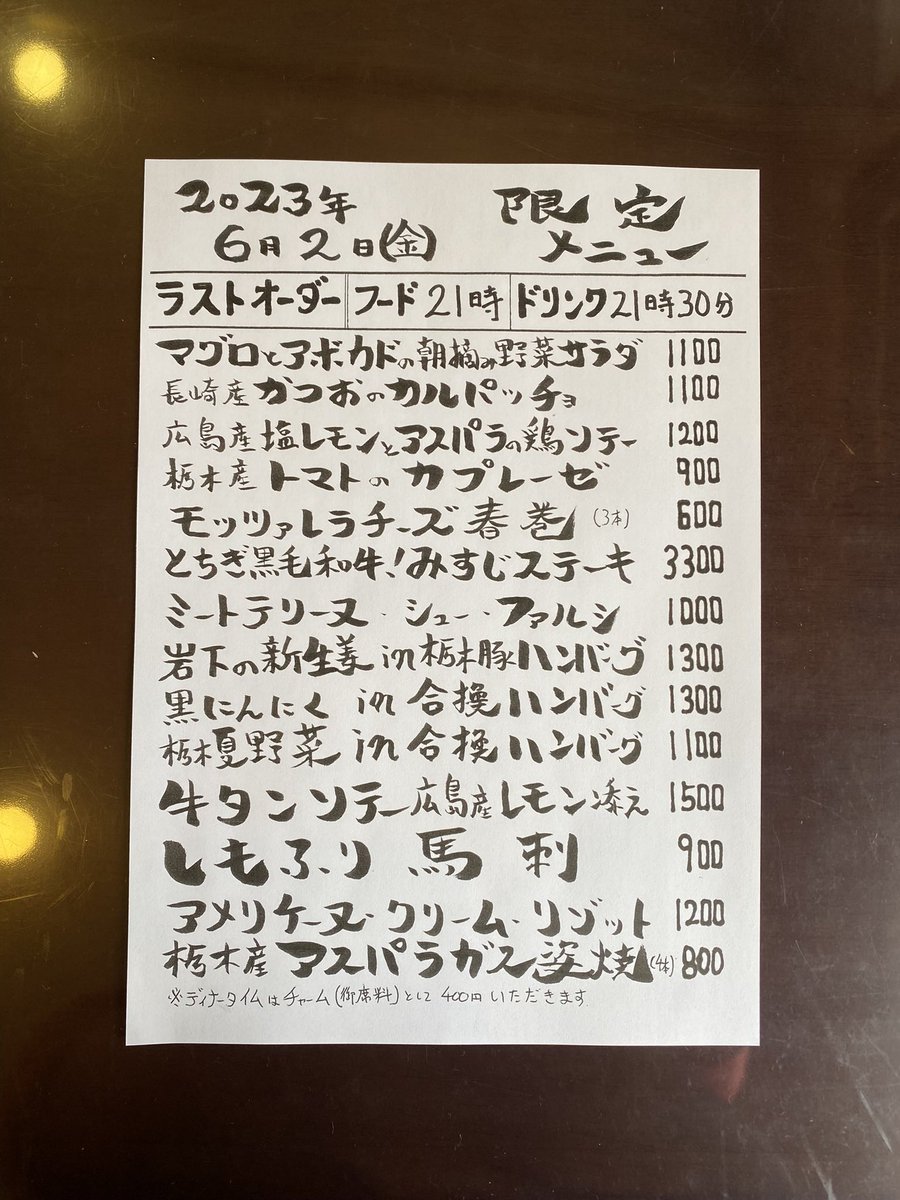 2023年 限定
6月2日(金) メニュー
ラストオーダー フード21時 ドリンク21時30分
マグロとアボカドの朝摘み野菜サラダ 1100
長崎産かつおのカルパッチョ 1100
広島産塩レモンとアスパラの鶏ソテー 1200
栃木産トマトのカプレーゼ 900
モッツァレラチーズ春巻(3本) 600
とちぎ黒毛和牛!みすじステーキ 3300
ミートテリーヌ・シュー・ファルシ 1000
岩下の新生姜in栃木豚ハンバーグ 1300
黒にんにくin合挽ハンバーグ 1300
栃木夏野菜in合挽ハンバーグ 1100
牛タンソテー広島産レモン添え 1500
しもふり馬刺 900
アメリケーヌ・クリーム・リゾット 1200
栃木産アスパラガス姿焼(4本) 800
※ディナータイムはチャーム(御席料)として400円いただきます